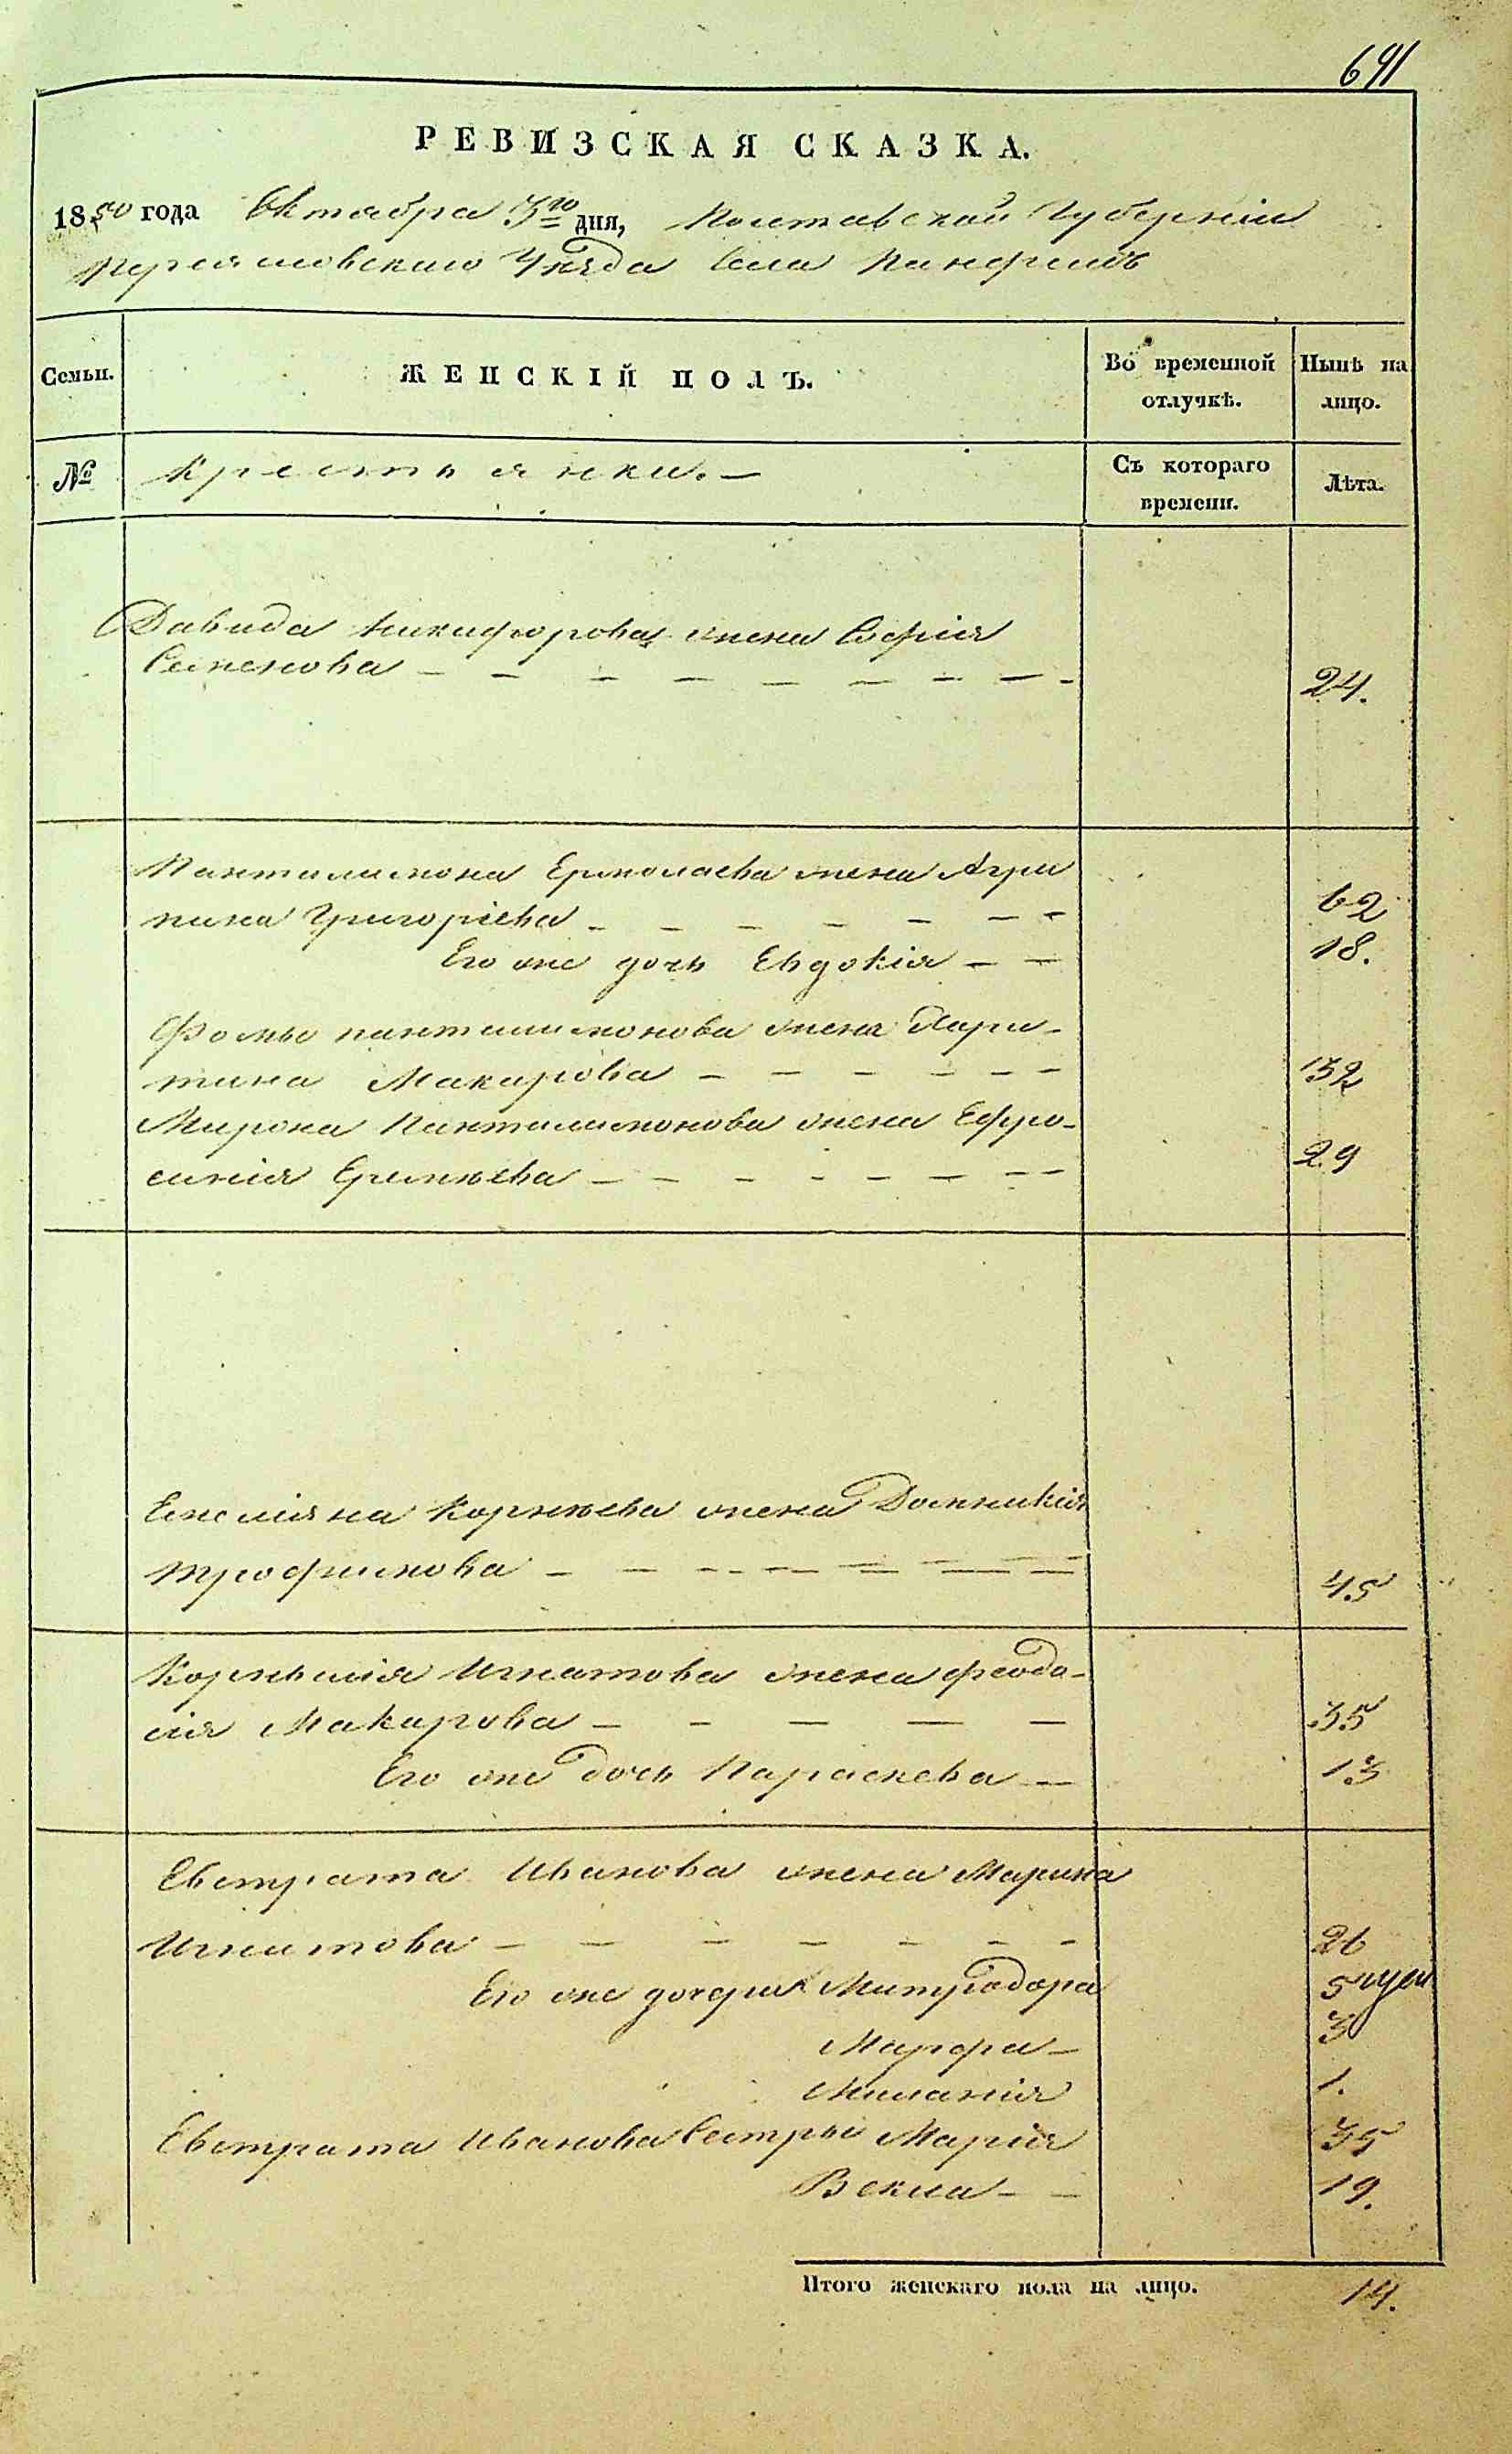 691
РЕВИЗСКАЯ СКАЗКА.
1850 года Октября 3го дня, Полтавской Губерніи
Переяславскаго Уѣзда Села Панфилъ
Семьи.
ЖЕНСКІЙ ПОЛЪ.
Во временной отлучкѣ.
Нынѣ на лицо.
№
Крестьянки. —
Съ котораго времени.
Лѣта.
Давида Никифорова жена Софія
Семенова — 24.
Пантилимона Ермолаева жена Агри
пина Григоріева — 62
Его же дочь Евдокія — 18.
Фомы пантилимонова жена Хари-
тина Макарова — 32
Мирона Пантилимонова жена Ефро-
синія Еремѣева — 29
Емеліяна Корнѣева жена Домникія
Трофимова — 45
Корнилія Игнатова жена Феодо-
сія Макарова — 35
Его же дочь Параскева — 13
Евстрата Иванова жена Марина
Игнатова — 26
Его же дочери Митродора 5
Марфа — 3
Миланія 1.
Евстрата Иванова Сестры Марія 35
Векла — 19.
Итого женскаго пола на лицо. 14.